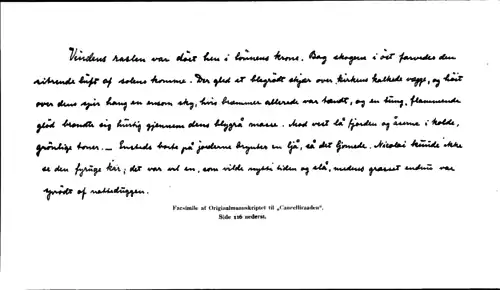 Vindens raslen var döet hen i lönnens krone. Bag skogen i öst farvedes den
sitrende luft af solens komme. Der gled et blegrödt skjær over kirkens kalkede vægge, og höit
over dens spir hang en ensom sky, hvis brammer allerede var tændt, og en tung, flammende
glöd bredte sig hurtig gjennem dens blygrå masse. Mod vest lå fjorden og åserne i kolde,
grönlige toner. — Ensteds borte på jorderne bryntes en ljå, så det ljomede. Nicolai kunde ikke
se den fyrige kar; det var vel en, som vilde nytte tiden og slå, medens græsset endnu var
vådt af natteduggen.
Facsimile af Originalmanuskriptet til „Cancelliraaden".
Side 116 nederst.